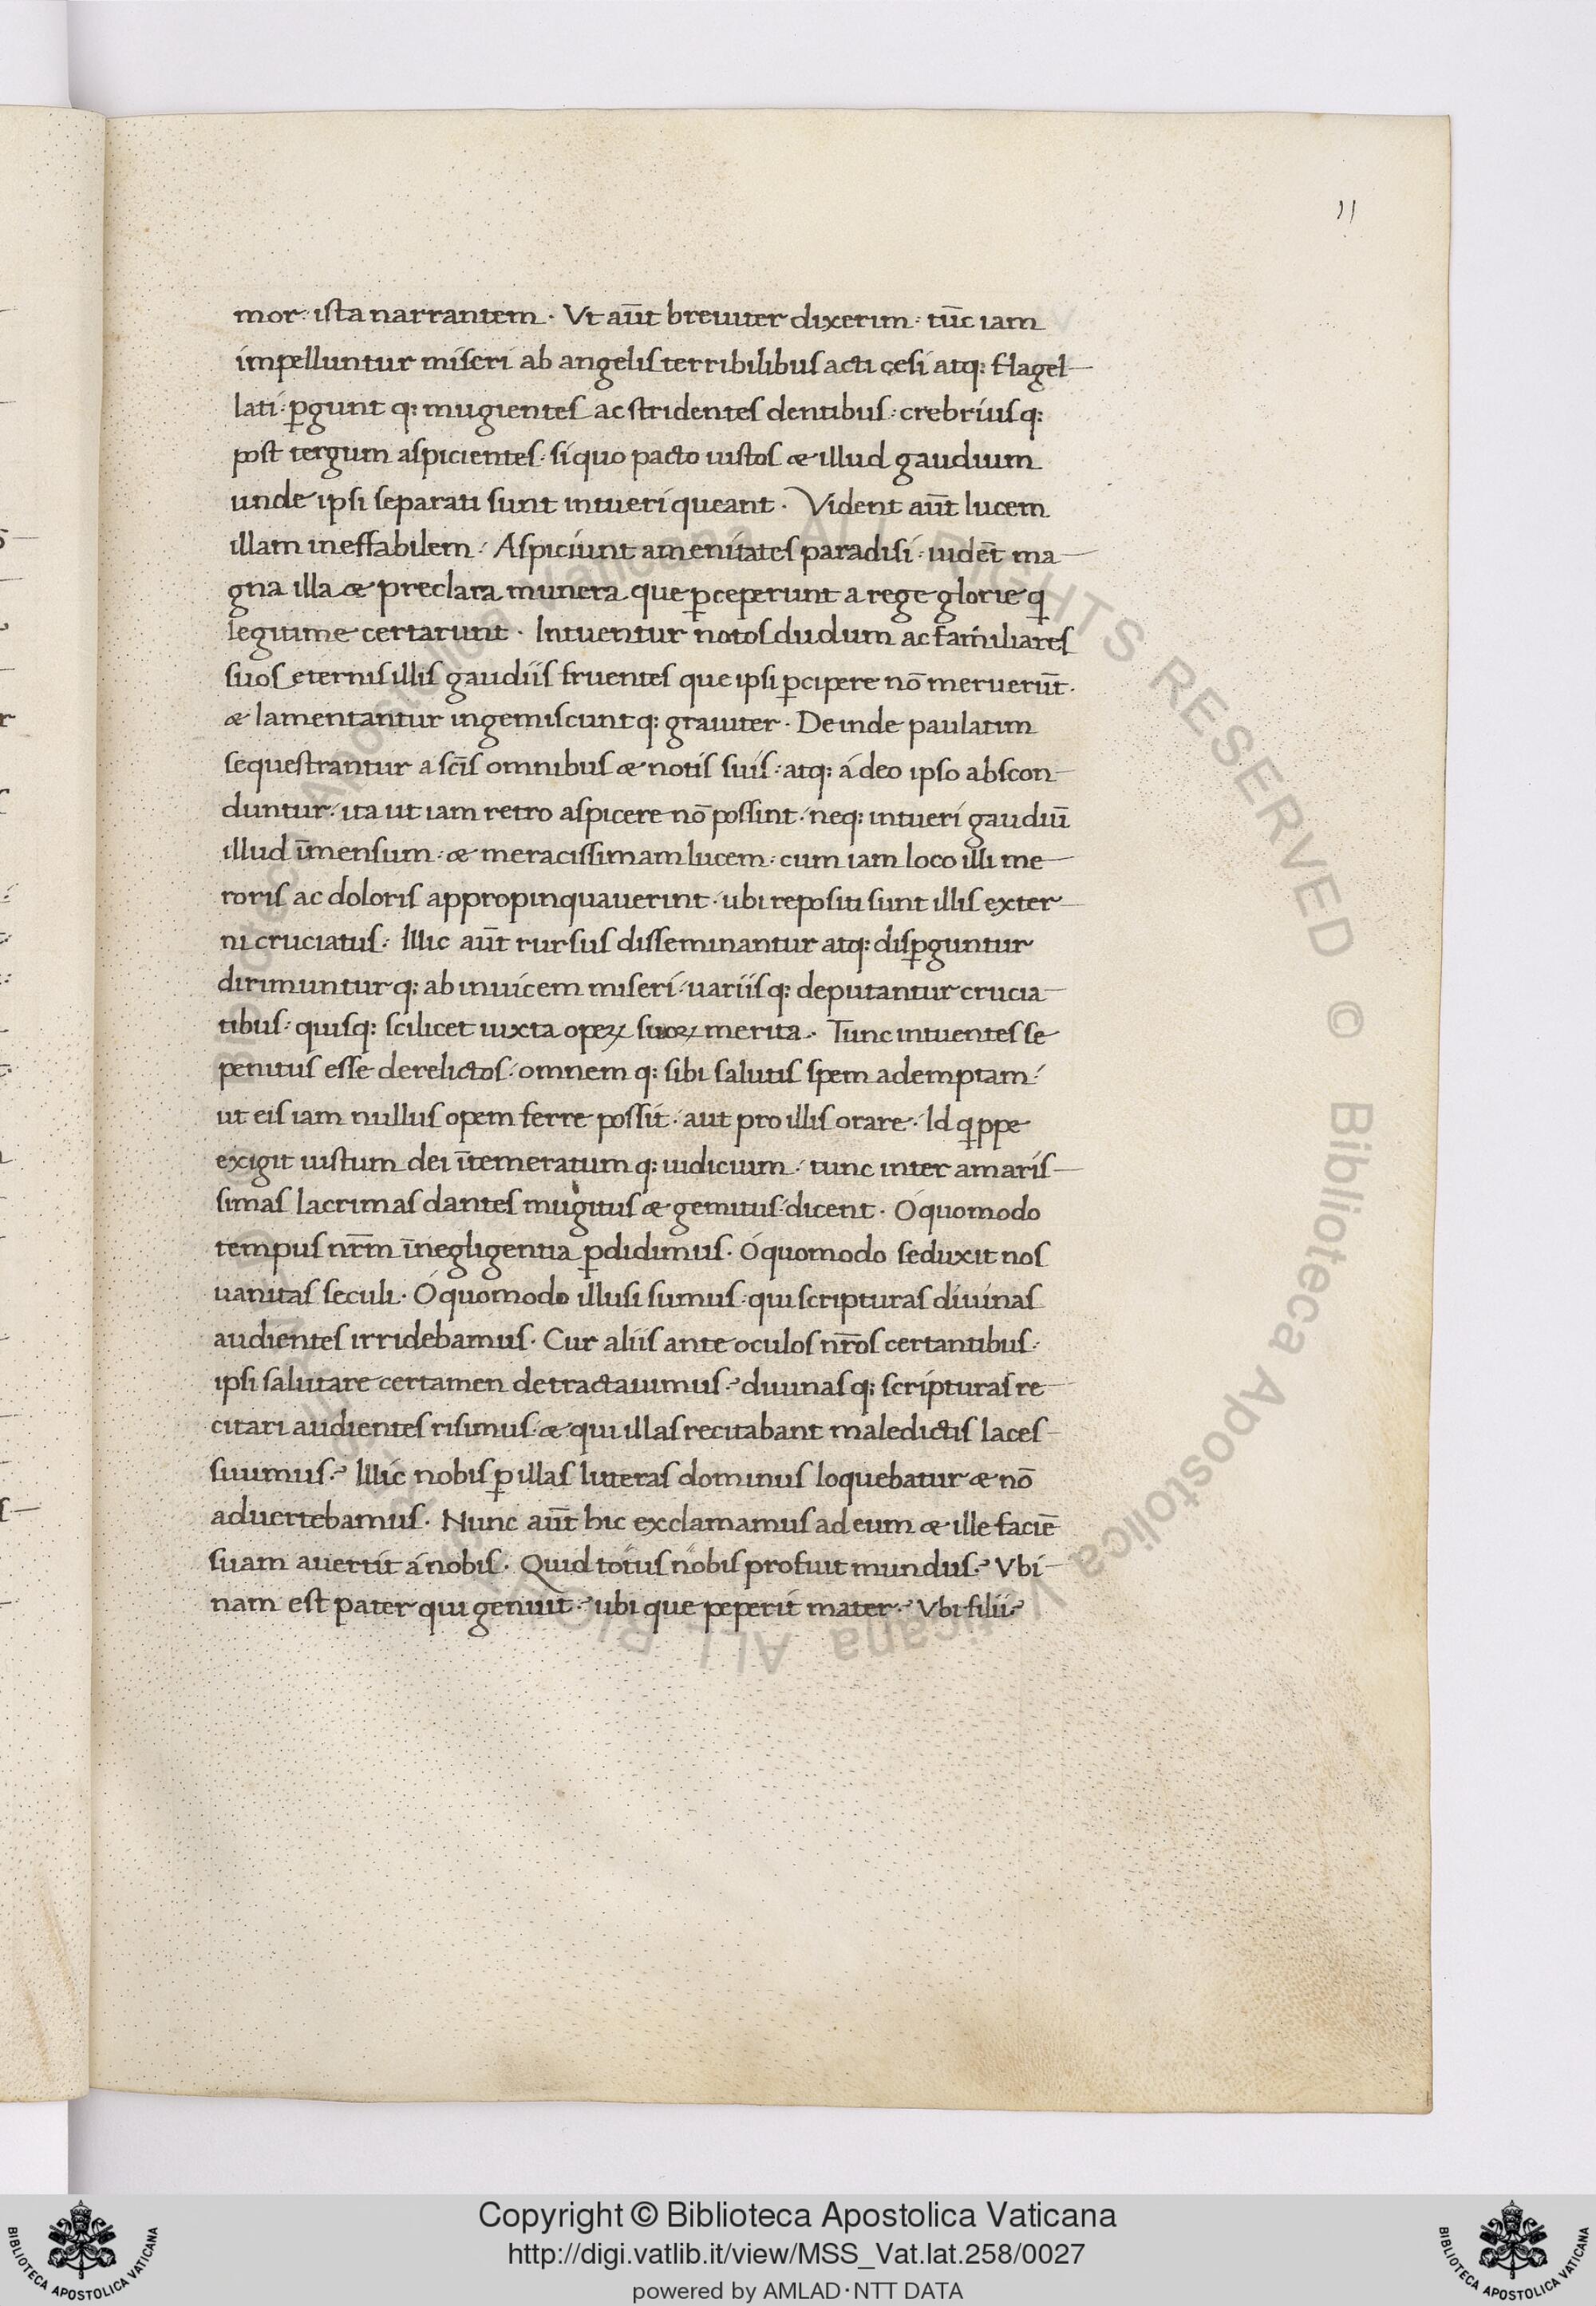 11
mor: ista narrantem. Vt aūt breuiter dixerim: tūc iam
impelluntur miseri ab angelis terribilibus acti cęsi atq: flagel-
lati: ꝑgunt q: mugientes ac stridentes dentibus: crebrius q:
post tergum aspicientes: si quo pacto iustos æ illud gaudium
unde ipsi separati sunt intueri queant. Vident aūt lucem
illam ineffabilem: Aspiciunt amenitates paradisi: uidēt ma-
gna illa æ preclara munera que ꝑceperunt a rege glorie q
legitime certarunt. Intuentur notos dudum ac familiares
suos eternis illis gaudiis fruentes que ipsi ꝑcipere nō meruerūt.
æ lamentantur ingemiscunt q: grauiter. Deinde paulatim
sequestrantur a scīs omnibus æ notis suis: atq: á deo ipso abscon-
duntur: ita ut iam retro aspicere nō possint: neq: intueri gaudiū
illud īmensum: æ meracissimam lucem: cum iam loco illi me-
roris ac doloris appropinquauerint: ubi repositi sunt illis exter-
ni cruciatus: Illic aūt rursus disseminantur atq: disꝑguntur
dirimuntur q: ab inuicem miseri: uariis q: deputantur crucia-
tibus: quisq: scilicet iuxta opeꝝ suoꝝ merita. Tunc intuentes se
penitus esse derelictos: omnem q: sibi salutis spem ademptam:
ut eis iam nullus opem ferre possit: aut pro illis orare. Id qppe
exigit iustum dei ītemeratum q: iudicium: tunc inter amaris-
simas lacrimas dantes mugitus æ gemitus: dicent. Ó quomodo
tempus nr̄m ī negligentia ꝑdidimus. Ó quomodo seduxit nos
uanitas seculi. Ó quomodo illusi sumus: qui scripturas diuinas
audientes irridebamus. Cur aliis ante oculos nr̄os certantibus:
ipsi salutare certamen detractauimus? diuinas q: scripturas re-
citari audientes risimus: æ qui illas recitabant maledictis laces-
siuimus? Illic nobis ꝑ illas litteras dominus loquebatur æ nō
aduertebamus. Nunc aūt hic exclamamus ad eum æ ille faciē
suam auertit á nobis. Quid totus nobis profuit mundus? Vbi-
nam est pater qui genuit? ubi que peperit mater? Vbi filii?
Copyright © Biblioteca Apostolica Vaticana
http://digi.vatlib.it/view/MSS_Vat.lat.258/0027
powered by AMLAD·NTT DATA
BIBLIOTECA APOSTOLICA VATICANA
BIBLIOTECA APOSTOLICA VATICANA
© Biblioteca Apostolica Vaticana ALL RIGHTS RESERVED © Biblioteca Apostolica Vaticana ALL RIGHTS RESERVED